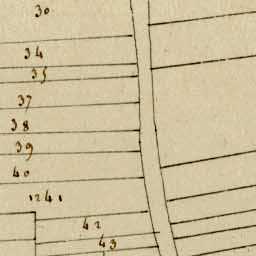 30
34
35
37
38
39
40
1241
42
43